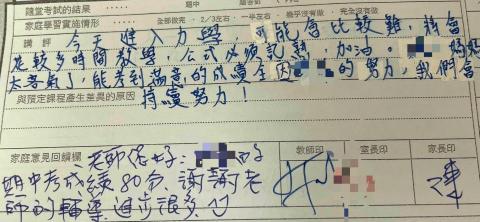 隨堂考試的結果
家庭學習實施情形 全部做完 2/3左右 一半左右 幾乎沒做 沒做
講 評 今天進入力學 可能會比較難,將會
花較多時間教學,公式必須記熟,加油。媽媽
太客氣了,能考到滿意的成績全因 的努力,我們會
持續努力!
與預定課程產生差異的原因
家庭意見回饋欄 老師您好: 的
期中考成績80分,謝謝老
師的輔導,進步很多
教師印 室長印 家長印
陳